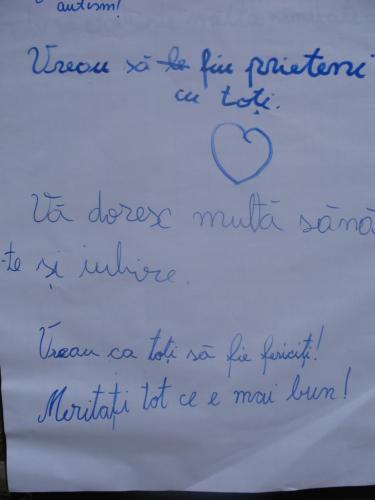 autism!
Vreau să le fiu prieteni
cu toți.
Vă doresc multă sănă
-te și iubire.
Vreau ca toți să fie fericiți!
Meritați tot ce e mai bun!